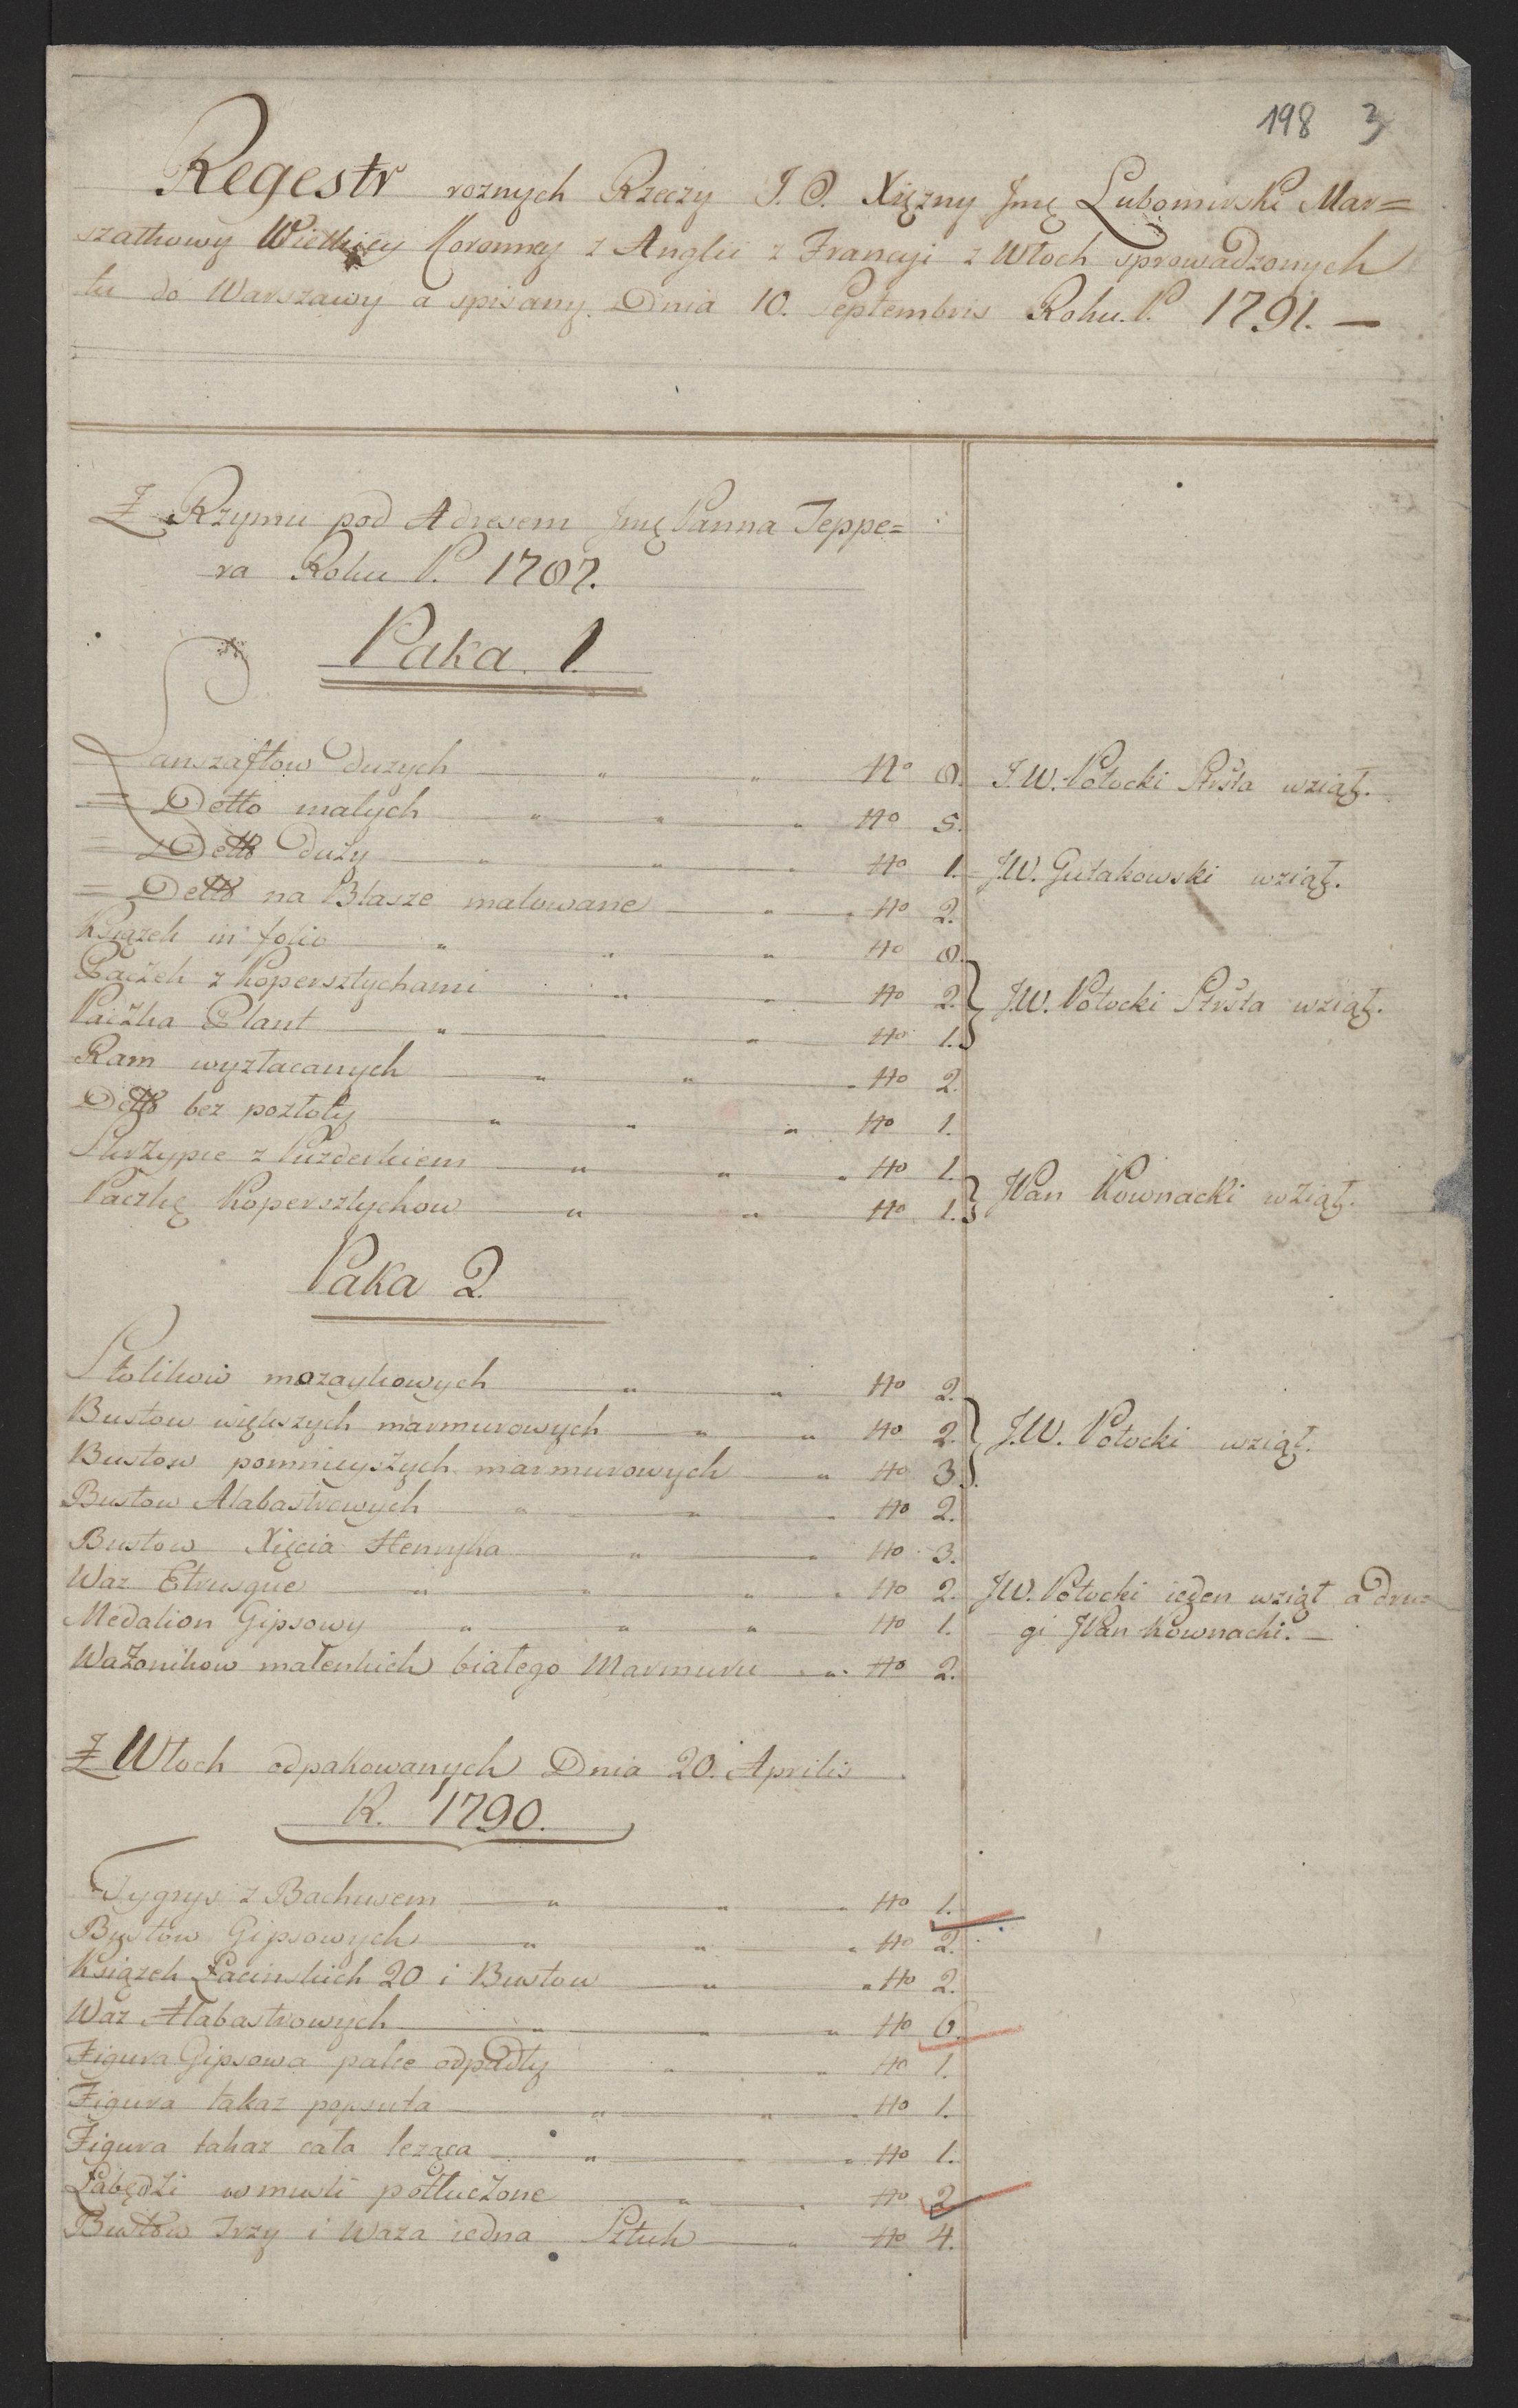 198 3
Regestr roznych Rzeczy J. O. Xiężny Jmę Lubomirski Mar=
szałkowy Wielkiey Koronney z Anglii z Francyi z Włoch sprowadzonych
tu do Warszawy a spisany. Dnia 10. Septembris Roku. P. 1791. —
Z Rzymu pod Adresem Jmę Panna Teppe=
ra Roku P. 1787.
Paka. 1.
Lanszaftow duzych — " — " — No 8. J. W. Potocki Strsta wziął.
= Detto małych — " — " — " No 5.
= Detto duży — " — " — " No 1. J.W. Gutakowski wziął.
= Detto na Blasze malowane — " — " No 2.
Książek in folio — " — " — " No 8.
Paczek z Kopersztychami " — " No 2. } J.W. Potocki Strsta wziął.
Paczka Plant — " — " No 1.
Ram wyzłacanych — " — " — " No 2.
Detto bez pozłoty — " — " — " No 1.
Skrzypce z Puzderkiem — " — " — " No 1. } JPan Kownacki wziął.
Paczkę Kopersztychow — " — " — No 1.
Paka 2.
Stolikow mozaykowych — " — " No 2.
Bustow większych marmurowych — " — " No 2. } J.W. Potocki wziął.
Bustow pomnieyszych marmurowych — " No 3.
Bustow Alabastrowych — " — " — " No 2.
Bustow Xięcia Henryka — " — " No 3.
Waz Etrusque — " — " — " — " No 2. J.W. Potocki ieden wziął a dru=
Medalion Gipsowy " — " — " No 1. gi JPan Kownacki. —
Wazonikow malenkich białego Marmuru — " No 2.
Z Włoch odpakowanych Dnia 20. Aprilis
R. 1790.
Tygrys z Bachusem — " — " — " No 1.
Bustow Gipsowych — " — " — " No 2.
Książek Łacinskich 20 i Bustow — " — " No 2.
Waz Alabastrowych — " — " — " No 6.
Figura Gipsowa palce odpadły " — " No 1.
Figura takaz popsuta — " — " — " No 1.
Figura takaz cała leząca — " — " — " No 1.
Łabędzi w muszli potłuczone — " — " No 2
Bustow Trzy i Waza iedna Sztuk — " No 4.